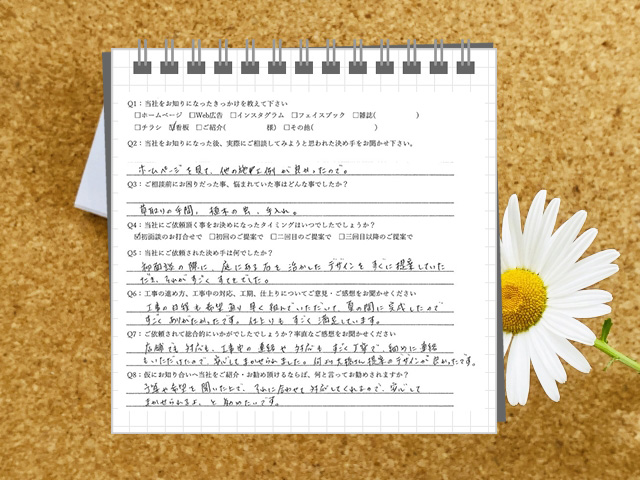 Q1：当社をお知りになったきっかけを教えて下さい
□ホームページ □Web広告 □インスタグラム □フェイスブック □雑誌( )
□チラシ ☑看板 □ご紹介( 様) □その他( )
Q2：当社をお知りになった後、実際にご相談してみようと思われた決め手をお聞かせ下さい。
ホームページを見て、他の施工例が良かったので。
Q3：ご相談前にお困りだった事、悩まれていた事はどんな事でしたか？
草取りの手間、植木の虫、手入れ。
Q4：当社にご依頼頂く事を決めたタイミングはいつでしたでしょうか？
☑初面談のお打合せで □初回のご提案で □二回目のご提案で □三回目以降のご提案で
Q5：当社にご依頼された決め手は何でしたか？
初面談の際に、庭にある石を活かしたデザインをすぐに提案していた
だき、それがすごくすてきでした。
Q6：工事の進め方、工事中の対応、工期、仕上りについてご意見・ご感想をお聞かせください
工事の日程も希望より早く組んでいただいて、夏の間に完成したので
すごくありがたかったです。仕上りもすごく満足しています。
Q7：ご依頼されて総合的にいかがでしたでしょうか？率直なご感想をお聞かせください
店舗での対応も、工事中の連絡や対応もすごく丁寧で、細めに連絡
もいただけたので、安心してまかせられました。何より提案のデザインが良かったです。
Q8：仮にお知り合いへ当社をご紹介・お勧め頂けるならば、何と言ってお勧めされますか？
予算や希望を聞いた上で、それに合わせて対応してくれるので、安心して
まかせられるよ、と勧めたいです。